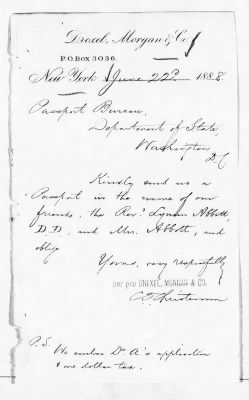 Drexel, Morgan & Co
P.O. Box 3036.
New York June 22d 1888
Passport Bureau,
Department of State,
Washington
D.C.
Kindly send us a
Passport in the name of our
friends, the Revd. Lyman Abbott
D.D. and Mrs. Abbott, and
oblige
Yours, very respectfully
per pro DREXEL, MORGAN & CO.
P.S. We enclose Dr A's application
& one dollar tax.